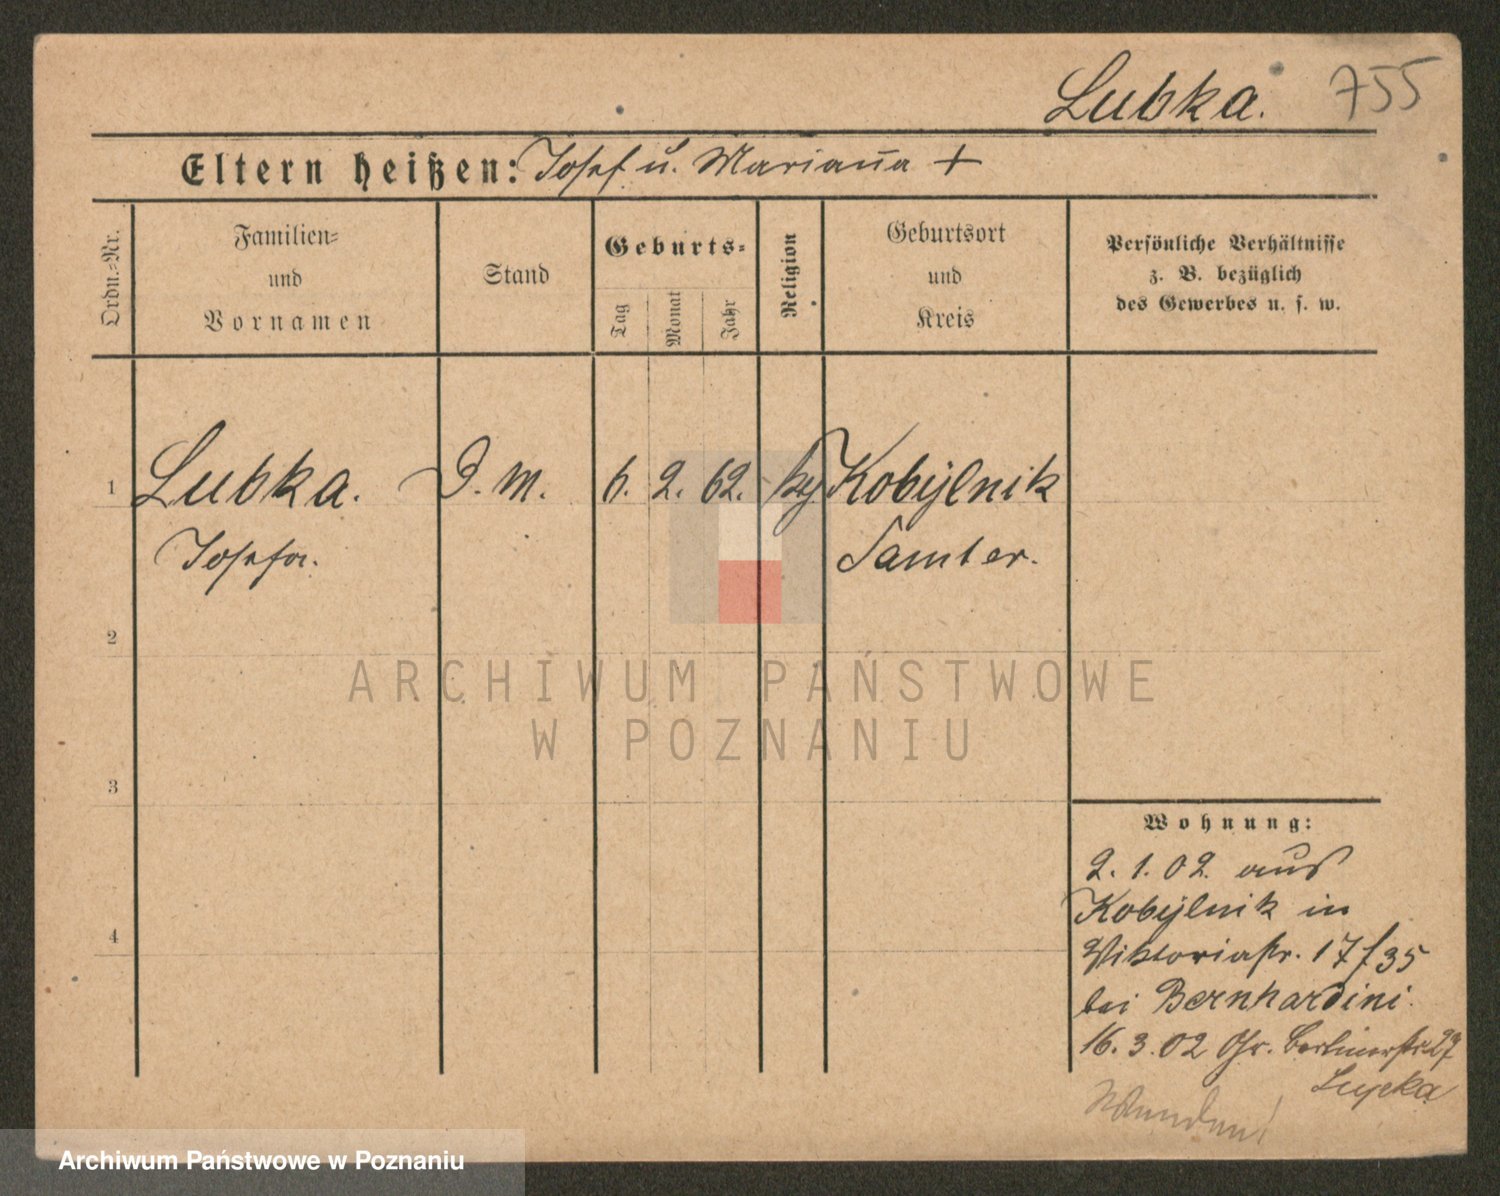 Lubka. 755
Eltern heißen: Josef u. Mariana +
Ordn.-Nr.
Familien-
und
Vornamen
Stand
Geburts-
Tag
Monat
Jahr
Religion
Geburtsort
und
Kreis
Persönliche Verhältnisse
z. B. bezüglich
des Gewerbes u. s. w.
1 Lubka. D. M. 6. 2. 62. Kobylnik
Josefa. Samter.
2
3
4
Wohnung:
2. 1. 02. aus
Kobylnik in
Viktoriastr. 17 / 35
bei Bernhardini.
16. 3. 02 Gr. Berlinerstr. 27
Wenden!
ARCHIWUM PAŃSTWOWE
W POZNANIU
Archiwum Państwowe w Poznaniu